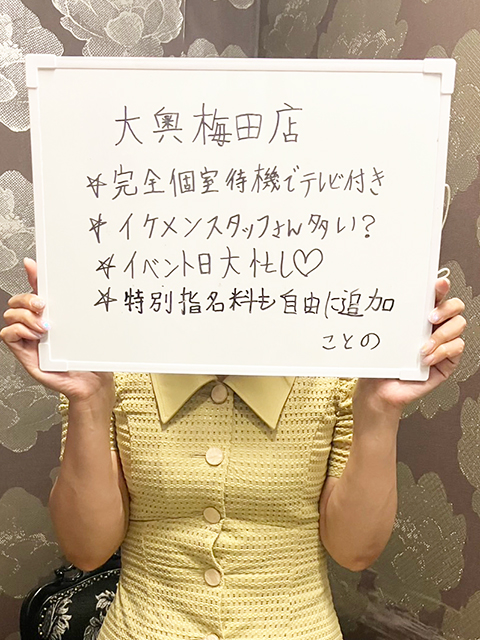 大奥梅田店
☆完全個室待機でテレビ付き
☆イケメンスタッフさん多い?
☆イベント日大忙し♡
☆特別指名料も自由に追加
ことの